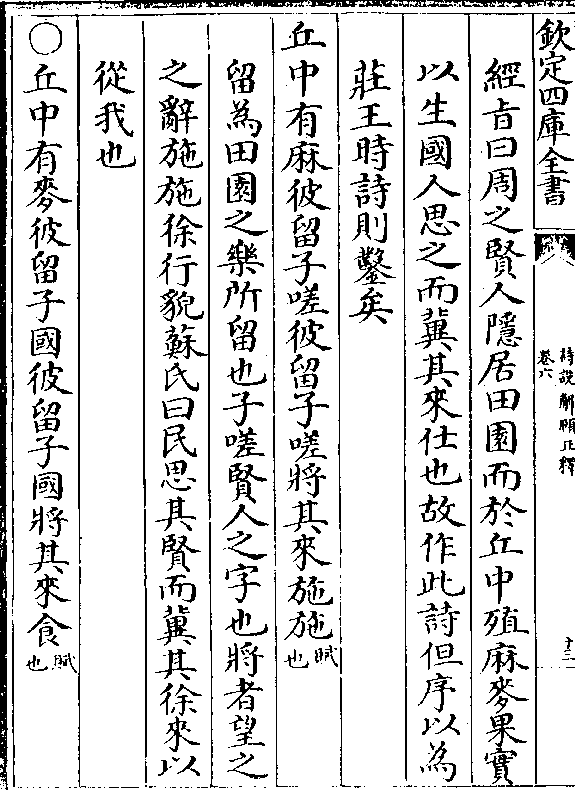 欽定四庫全書
詩說解頤正釋
卷六
十三
經旨曰周之賢人隱居田園而於丘中殖麻麥果實
以生國人思之而冀其來仕也故作此詩但序以為
莊王時詩則鑿矣
丘中有麻彼留子嗟彼留子嗟將其來施施賦也
留為田園之樂所留也子嗟賢人之字也將者望之
之辭施施徐行貌蘇氏曰民思其賢而冀其徐來以
從我也
○丘中有麥彼留子國彼留子國將其來食賦也